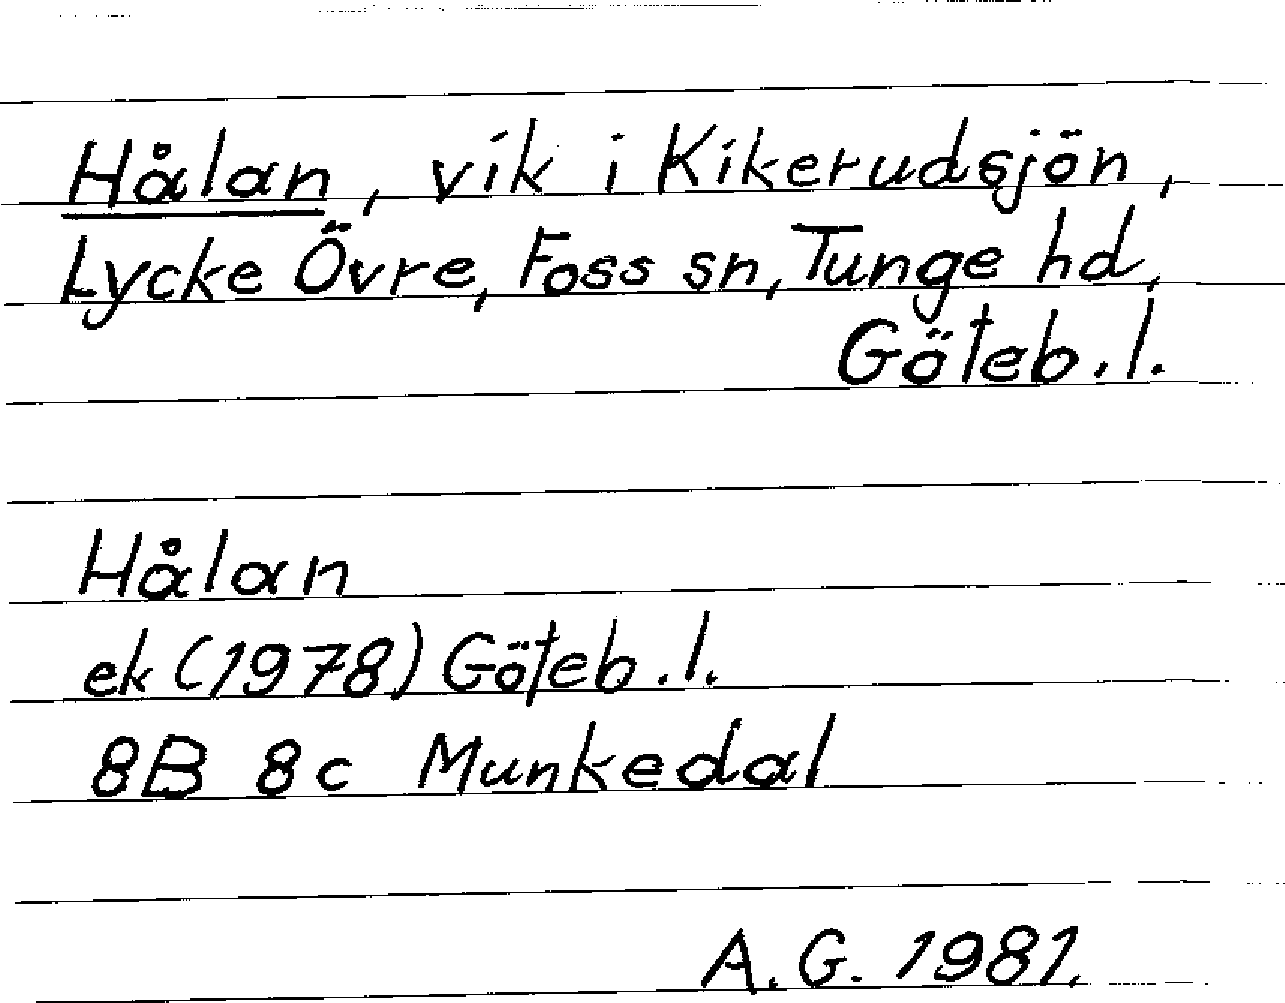 Hålan, vik i Kikerudsjön,
Lycke Övre, Foss sn, Tunge hd,
Göteb. l.
Hålan
ek (1978) Göteb. l.
8B 8c Munkedal
A. G. 1981.